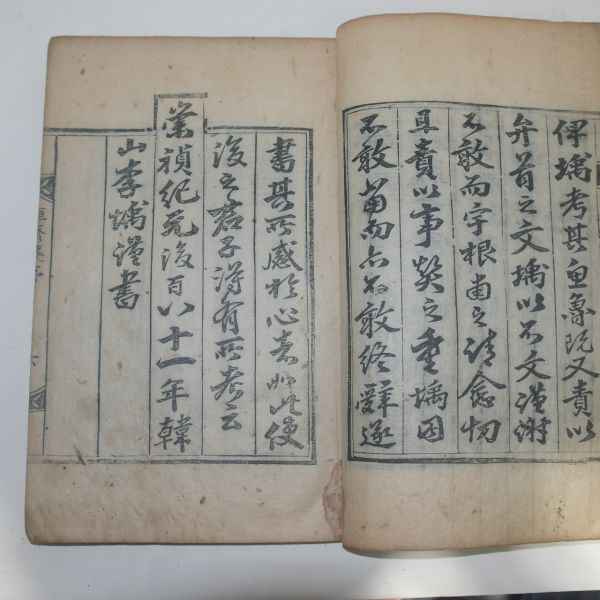 俾㙖考其魚魯既又責以
弁首之文㙖以不文謹謝
不敢而宇根甫之請愈切
且責以事契之重㙖固
不敢當而亦不敢終辭遂
書其所感於心者如此使
後之君子得有所考云
崇禎紀元後百八十一年韓
山李㙖謹書